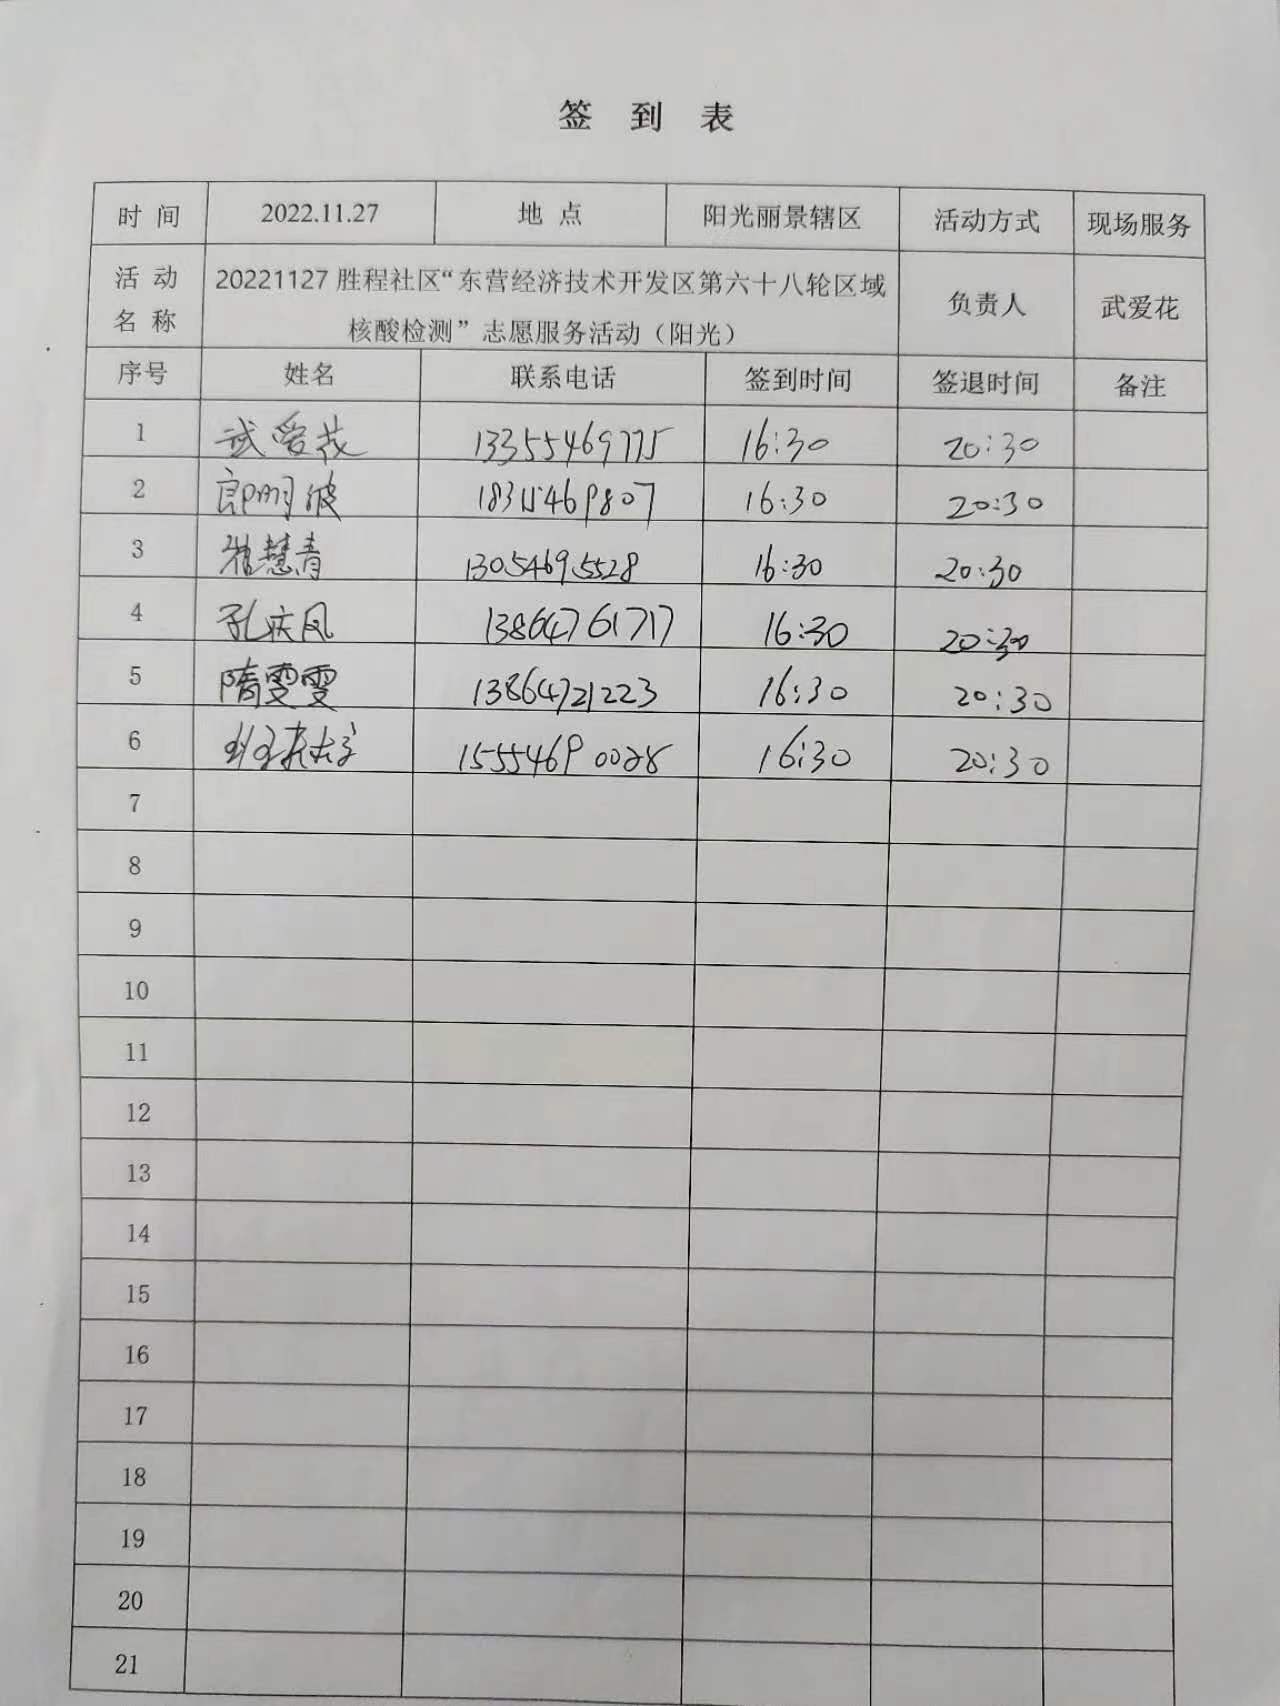 签 到 表
时 间 2022.11.27 地 点 阳光丽景辖区 活动方式 现场服务
活 动 名 称 20221127 胜程社区“东营经济技术开发区第六十八轮区域 负责人 武爱花
核酸检测”志愿服务活动（阳光）
序号 姓名 联系电话 签到时间 签退时间 备注
1 武爱花 13355469775 16:30 20:30
2 郎明波 16:30 20:30
3 慧青 13054695528 16:30 20:30
4 孔庆凤 13864761717 16:30 20:30
5 隋雯雯 13864721223 16:30 20:30
6 15554690028 16:30 20:30
7
8
9
10
11
12
13
14
15
16
17
18
19
20
21